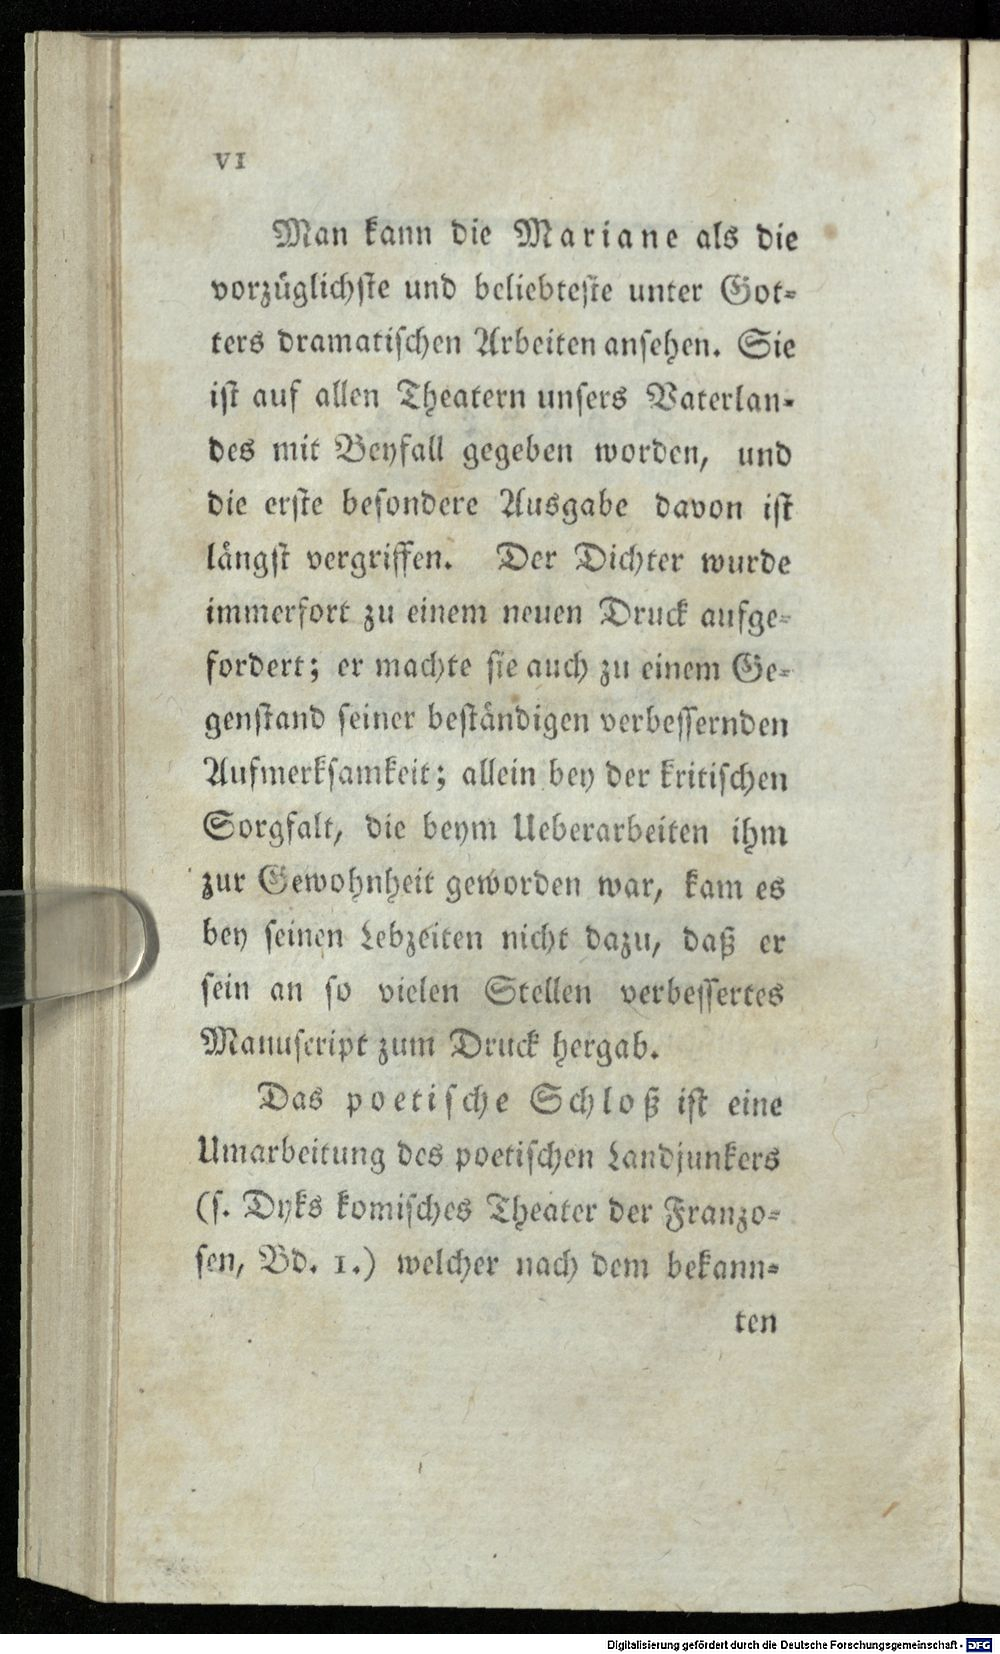 VI
Man kann die Mariane als die
vorzüglichſte und beliebteſte unter Got-
ters dramatiſchen Arbeiten anſehen. Sie
iſt auf allen Theatern unſers Vaterlan-
des mit Beyfall gegeben worden, und
die erſte beſondere Ausgabe davon iſt
längſt vergriffen. Der Dichter wurde
immerfort zu einem neuen Druck aufge-
fordert; er machte ſie auch zu einem Ge-
genſtand ſeiner beſtändigen verbeſſernden
Aufmerkſamkeit; allein bey der kritiſchen
Sorgfalt, die beym Ueberarbeiten ihm
zur Gewohnheit geworden war, kam es
bey ſeinen Lebzeiten nicht dazu, daß er
ſein an ſo vielen Stellen verbeſſertes
Manuſcript zum Druck hergab.
Das poetiſche Schloß iſt eine
Umarbeitung des poetiſchen Landjunkers
(ſ. Dyks komiſches Theater der Franzo-
ſen, Bd. 1.) welcher nach dem bekann-
ten
Digitalisierung gefördert durch die Deutsche Forschungsgemeinschaft - DFG